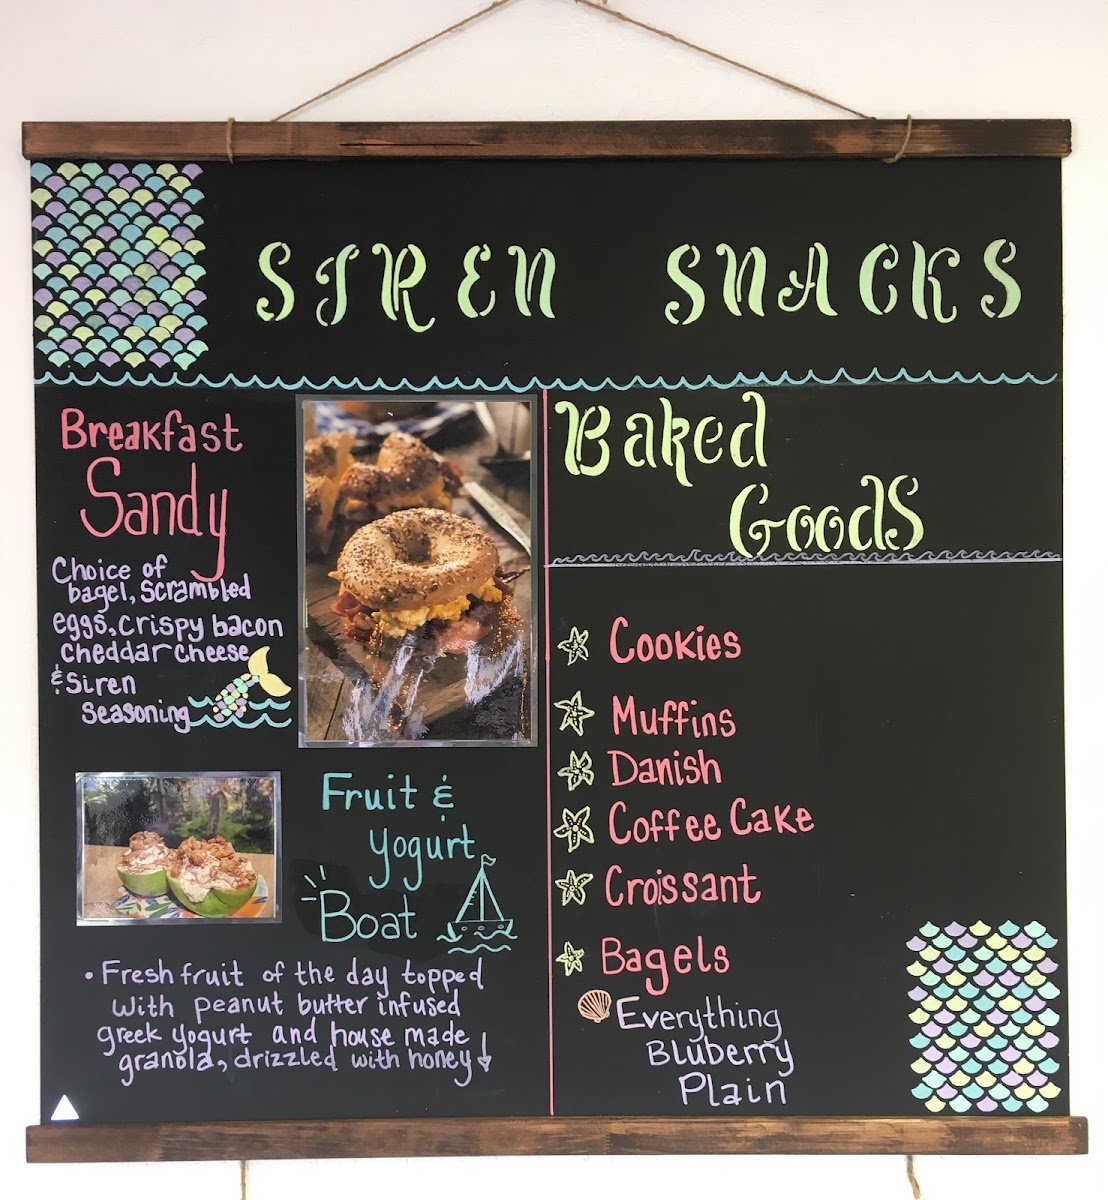 SIREN SNACKS
Breakfast
Sandy
Choice of
bagel, scrambled
eggs, crispy bacon
cheddar cheese
& Siren
seasoning
Fruit &
Yogurt
Boat
• Fresh fruit of the day topped
with peanut butter infused
greek yogurt and house made
granola, drizzled with honey!
Baked
Goods
Cookies
Muffins
Danish
Coffee Cake
Croissant
Bagels
Everything
Bluberry
Plain